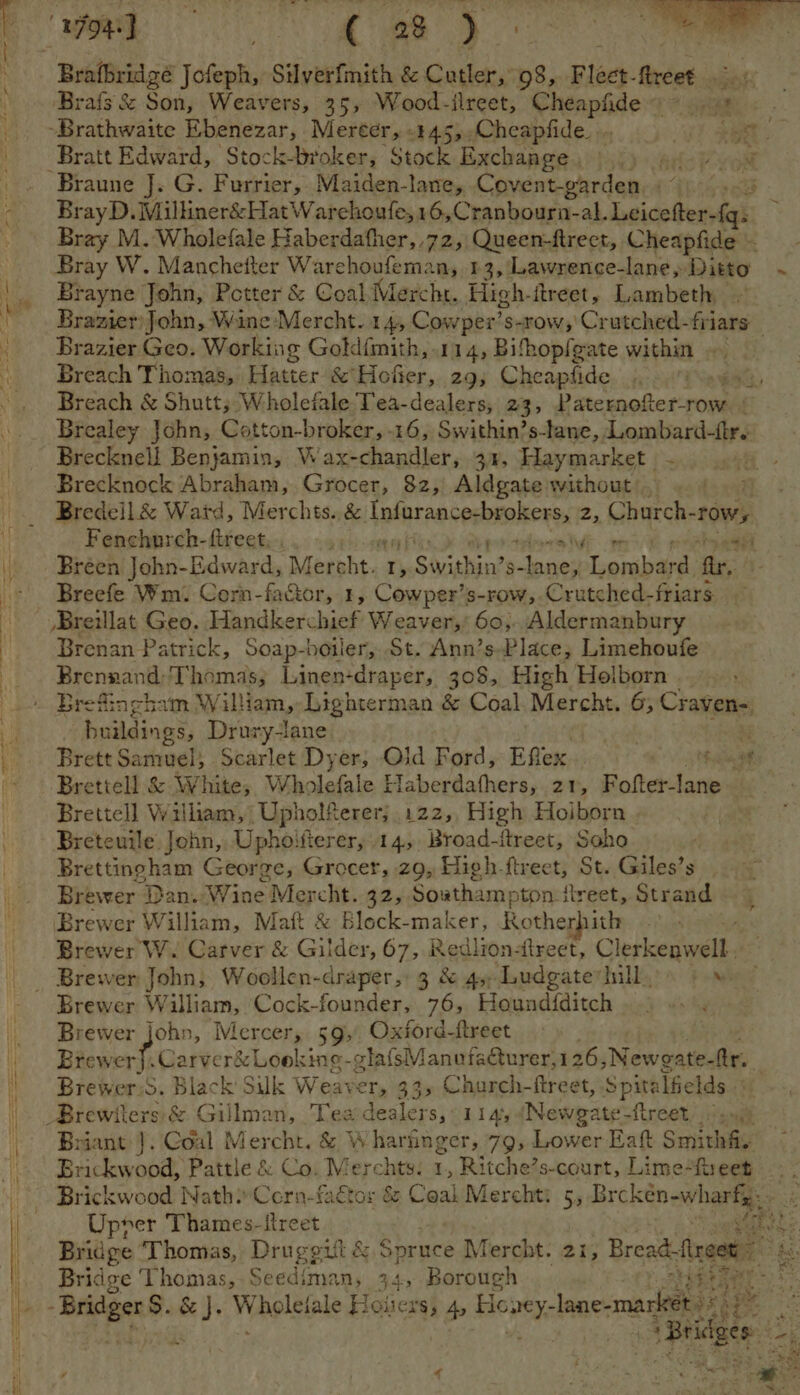 1794.] ( 28 )
Braſbridge Joſeph, Silverſmith & Cutler, 98, Fleet-ſtreet
Braſs & Son, Weavers, 35, Wood-ſtreet, Cheapſide
Brathwaite Ebenezar, Mercer, 145, Cheapſide.
Bratt Edward, Stock-broker, Stock Exchange
Braune J. G. Furrier, Maiden-lane, Covent-garden
Bray D. Milliner&HatWarehouſe, 16, Cranbourn-al. Leiceſter-ſq.
Bray M. Wholeſale Haberdaſher, 72, Queen-ſtreet, Cheapſide
Bray W. Mancheſter Warehouſeman, 13, Lawrence-lane, Ditto
Brayne John, Potter & Coal Mercht. High-ſtreet, Lambeth
Brazier John, Wine Mercht. 14, Cowper's-row, Crutched-friars
Brazier Geo. Working Goldſmith, 114, Biſhopſgate within
Breach Thomas, Hatter & Hoſier, 29, Cheapſide
Breach & Shutt, Wholeſale Tea-dealers, 23, Paternoſter-row
Brealey John, Cotton-broker, 16, Swithin's-lane, Lombard-ſtr.
Brecknell Benjamin, Wax-chandler, 31, Haymarket
Brecknock Abraham, Grocer, 82, Aldgate without
Bredell & Ward, Merchts. & Inſurance-brokers, 2, Church-row,
Fenchurch-ſtreet.
Breen John-Edward, Mercht. 1, Swithin's-lane, Lombard ſtr.
Breeſe Wm. Corn-factor, 1, Cowper's-row, Crutched-friars
Breillat Geo. Handkerchief Weaver, 60, Aldermanbury
Brenan Patrick, Soap-boiler, St. Ann's-Place, Limehouſe
Brenmand Thomas, Linen-draper, 308, High Holborn
Breſſingham William, Lighterman & Coal Mercht. 6, Craven-
buildings, Drury-lane
Brett Samuel, Scarlet Dyer, Old Ford, Eſſex
Brettell & White, Wholeſale Haberdaſhers, 21, Foſter-lane
Brettell William, Upholſterer, 122, High Holborn
Breteuile John, Upholſterer, 14, Broad-ſtreet, Soho
Brettingham George, Grocer, 29, High-ſtreet, St. Giles's
Brewer Dan. Wine Mercht. 32, Southampton ſtreet, Strand
Brewer William, Maſt & Block-maker, Rotherhith
Brewer W. Carver & Gilder, 67, Redlion-ſtreet, Clerkenwell
Brewer John, Woollen-draper, 3 & 4, Ludgate hill
Brewer William, Cock-founder, 76, Houndſditch
Brewer John, Mercer, 59, Oxford-ſtreet
Brewer J. Carver&Looking-glaſsManufacturer, 126, Newgate-ſtr.
Brewer S. Black Silk Weaver, 33, Church-ſtreet, Spitalfields
Brewſters & Gillman, Tea dealers, 114, Newgate-ſtreet
Briant J. Coal Mercht. & Wharfinger, 79, Lower Eaſt Smithfi.
Brickwood, Pattle & Co. Merchts. 1, Ritche's-court, Lime-ſtreet
Brickwood Nath. Corn-factor & Coal Mercht. 5, Brcken-wharf,
Upper Thames-ſtreet
Bridge Thomas, Druggiſt & Spruce Mercht. 21, Bread-ſtreet
Bridge Thomas, Seedſman, 34, Borough
Bridger S. & J. Wholeſale Hoſiers, 4, Honey-lane-market
Bridges